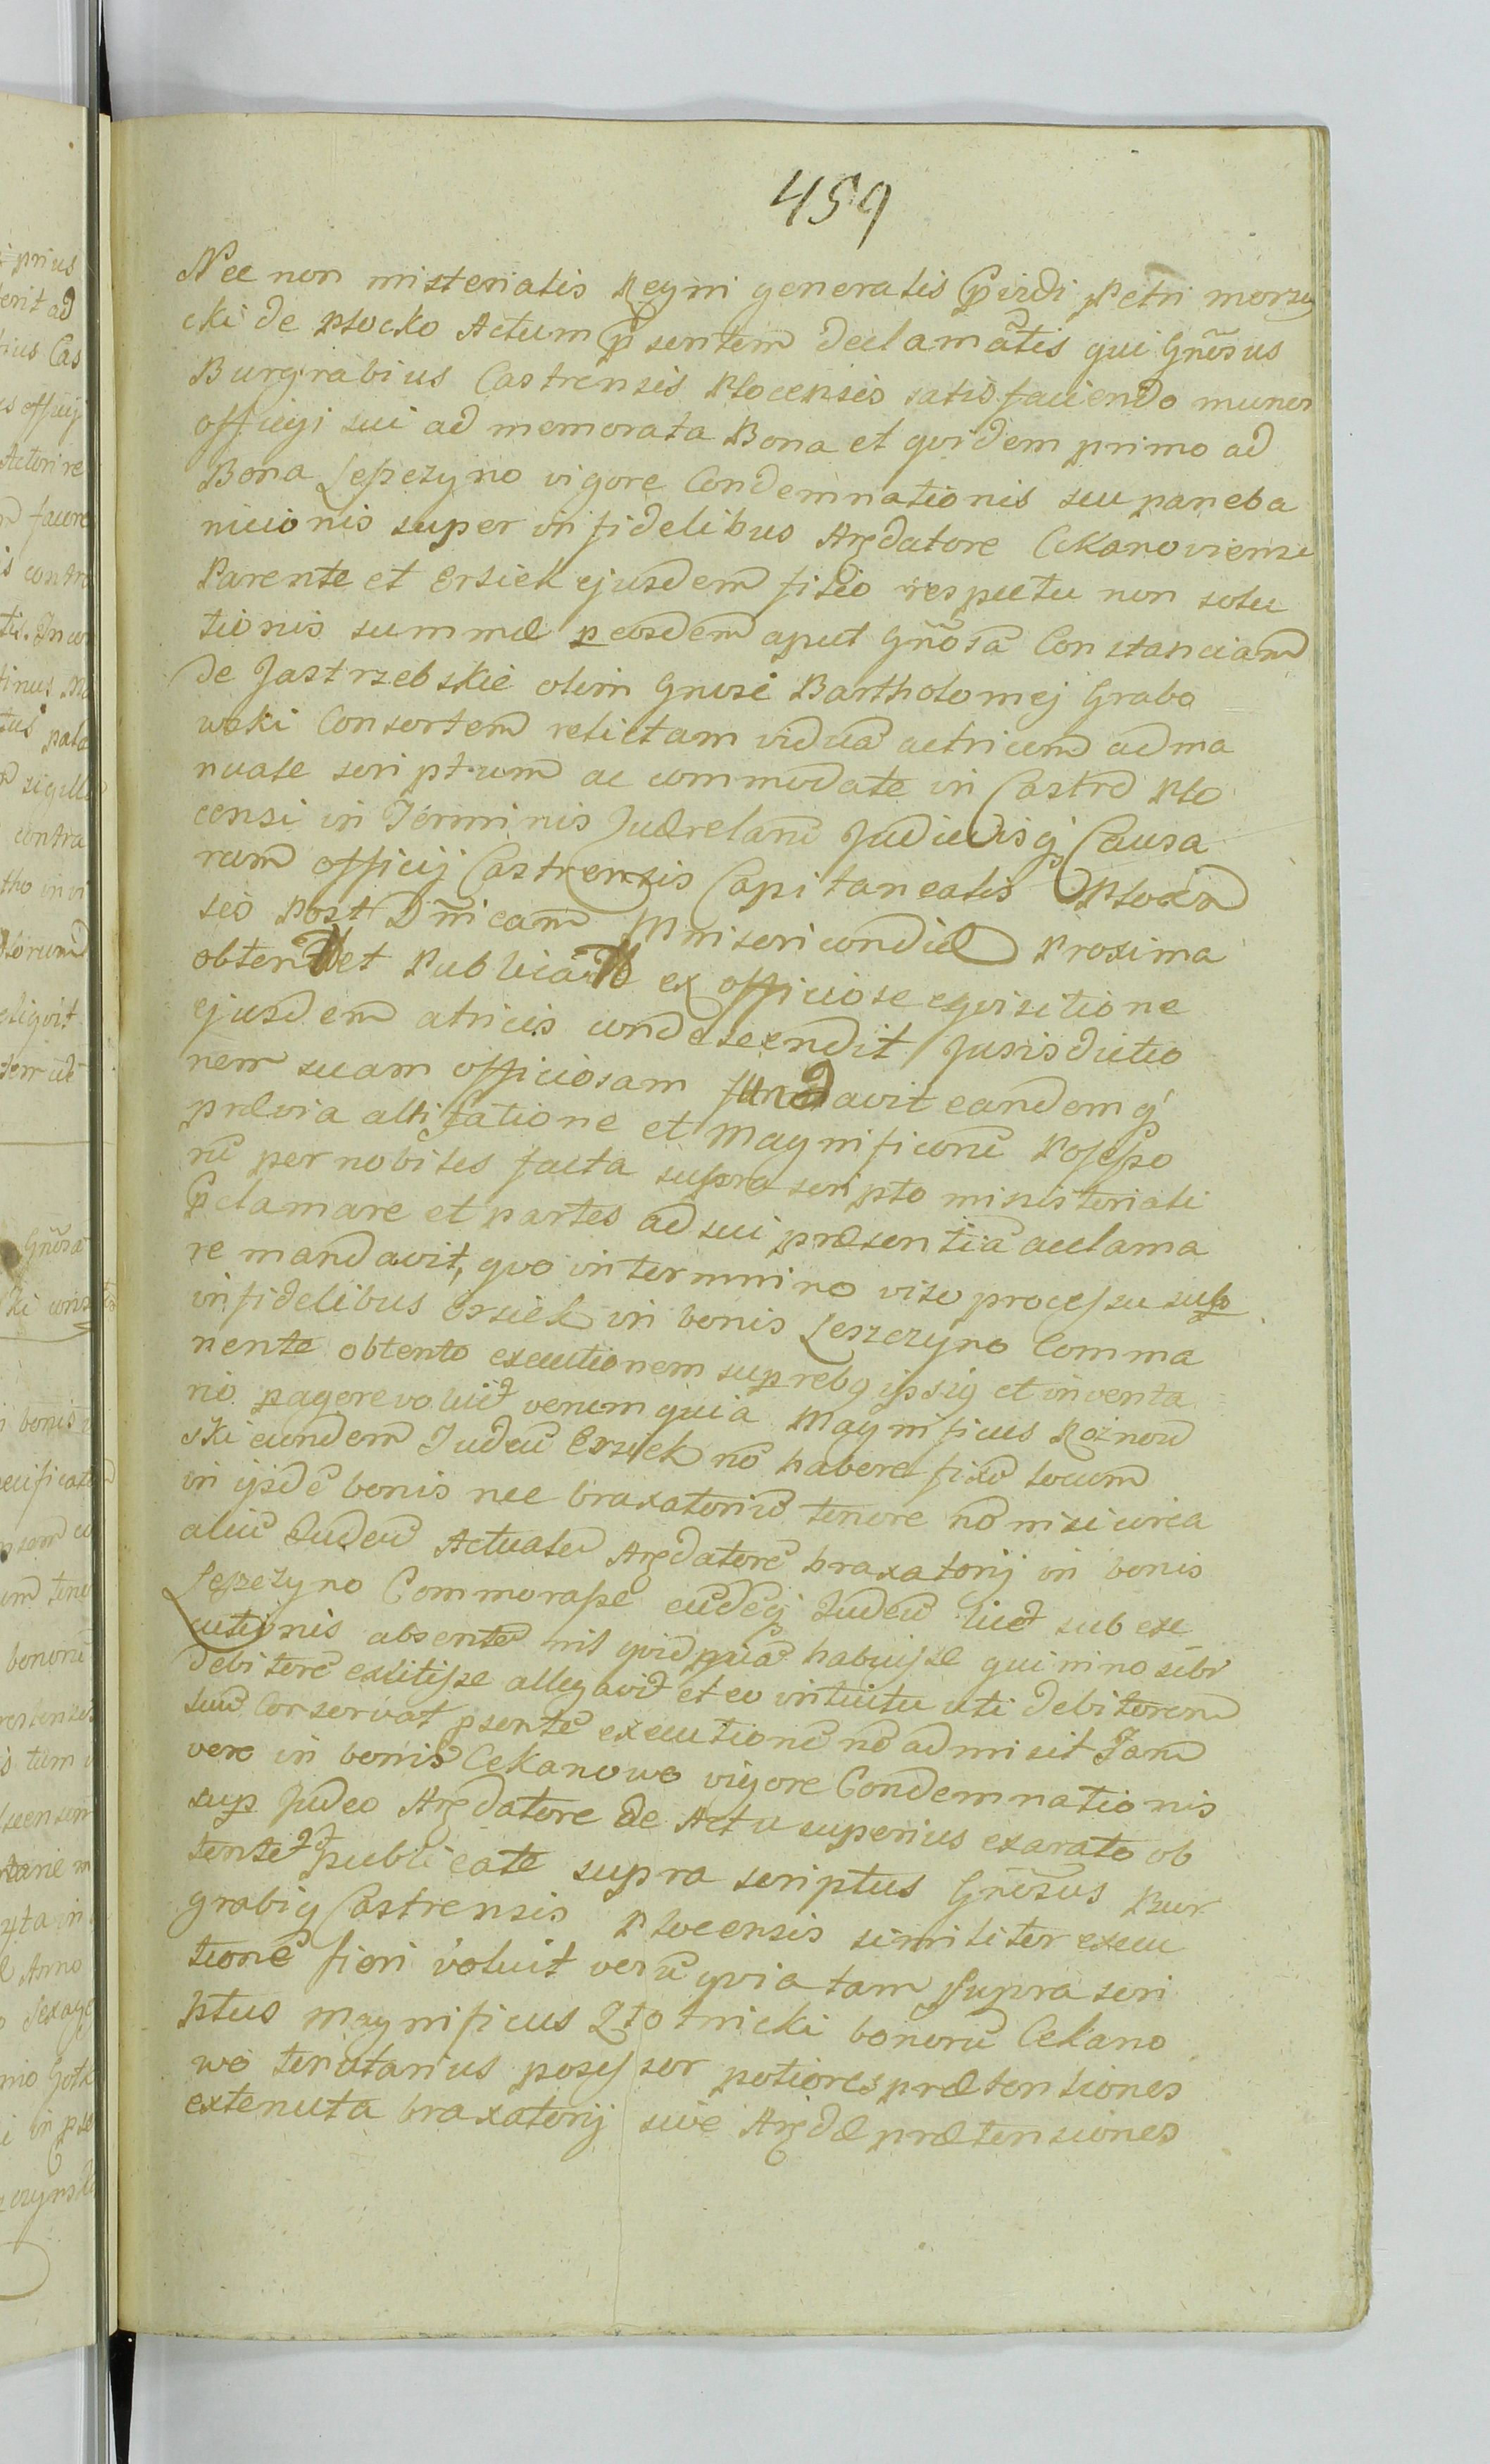 459
Nec non misterialis Regni generalis pvidi Petri morzy
cki de Plocko Actum psentem declamãtis qui Gnõsus
Burgrabius Castrensis Plocensis satisfaciendo muneri
officiji sui ad memorata Bona et qvidem primo ad
Bona Leszczyno vigore Condemnationis seu paneba
nicionis super infidelibus Arędatore Cekanoviensi
Parente et Ersiek ejusdem filio respectu non solu
tionis summæ p eosdem aput Gnõsã Constanciam
de Jastrzebskie olim Gnosi Bartholomej Grabo
wski Consortem relictam viduã actricem ad ma
nuale scriptum ac commodate in Castro Plo
censi in Terminis Judicijsq Causa
rum officij Castrensis Capitanealis Plocen
sis Post Dnicam Misericordiæ Proxima
obtent et Publicat ex officiose eqvisitione
ejusdem atricis condescendit Jurisdictio
nem suam officiosam fundavit eandemq
prævia altifatione et Magnificorũ Posesso
rũ per nobiles facta supra scripto ministeriali
pclamare et partes ad sui præsentiã acclama
re mandavit, qvo in termnino viso processu sup
infidelibus Ersiek in bonis Leszczyno Comma
nente obtento executionem sup rebq ipsiq et inventa
rio pagere voluit verum quia Magnificus Roznow
ski eundem Judeũ Ersiek nõ habere fixũ locum
in ijsdẽ bonis nec braxatoriũ tenere nõ nisi circa
aliũ Judeũ Actualẽ Arędatorẽ braxatorij in bonis
Leszczyno Commorasse eũdẽq Judeũ licet sub exe
cutionis absentẽ nil qvidpiã habuisse qui nino sibi
debitorẽ extitisse allegavit et eo intuitu uti debitorem
suũ Conservat psentẽ executionẽ nõ admisit Jam
vero in bonis Cekanowo vigore Condemnationis
sup Judeo Arędatore de Actu superius exarato ob
tente et publicate supra scriptus Gnõsus Bur
grabiq Castrensis Plocensis similiter execu
tionẽ fieri voluit verũ qvia tam Supra scri
ptus Magnificus Złotnicki bonorũ Cekano
wo tenutarius posessor potiores prætentiones
extenuta braxatorij sive Arędæ prætensiones